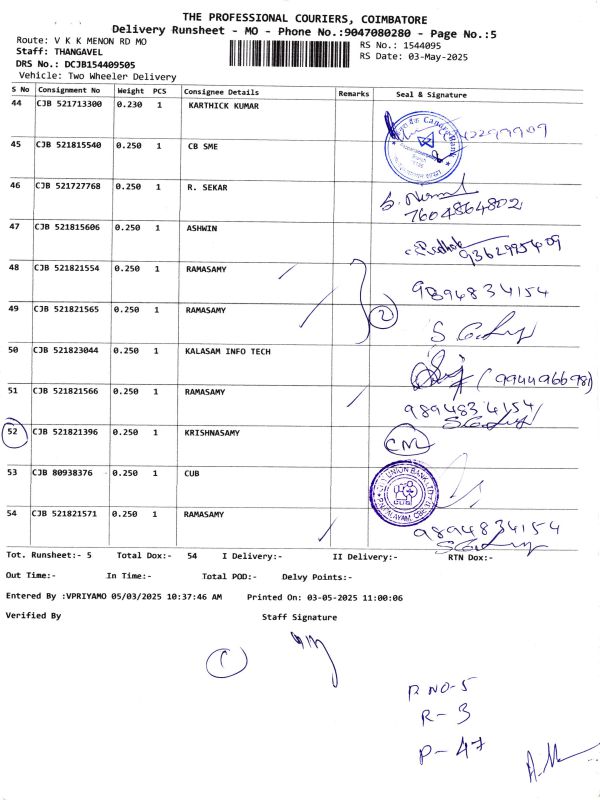 THE PROFESSIONAL COURIERS, COIMBATORE
Delivery Runsheet - MO - Phone No.:9047080280 - Page No.:5
Route: V K K MENON RD MO
RS No.: 1544095
Staff: THANGAVEL
RS Date: 03-May-2025
DRS No.: DCJB154409505
Vehicle: Two Wheeler Delivery
S No Consignment No Weight PCS Consignee Details Remarks Seal & Signature
44 CJB 521713300 0.230 1 KARTHICK KUMAR
45 CJB 521815540 0.250 1 CB SME
Canara Bank
46 CJB 521727768 0.250 1 R. SEKAR
7604864802
47 CJB 521815606 0.250 1 ASHWIN
9362995409
48 CJB 521821554 0.250 1 RAMASAMY
9894834154
49 CJB 521821565 0.250 1 RAMASAMY
2
50 CJB 521823044 0.250 1 KALASAM INFO TECH
(9944966981)
51 CJB 521821566 0.250 1 RAMASAMY
9894834154
52 CJB 521821396 0.250 1 KRISHNASAMY
53 CJB 80938376 0.250 1 CUB
CITY UNION BANK LTD
CUB
54 CJB 521821571 0.250 1 RAMASAMY
9894834154
Tot. Runsheet:- 5 Total Dox:- 54 I Delivery:- II Delivery:- RTN Dox:-
Out Time:- In Time:- Total POD:- Delvy Points:-
Entered By :VPRIYAMO 05/03/2025 10:37:46 AM Printed On: 03-05-2025 11:00:06
Verified By Staff Signature
1
R NO-5
R- 3
P- 47